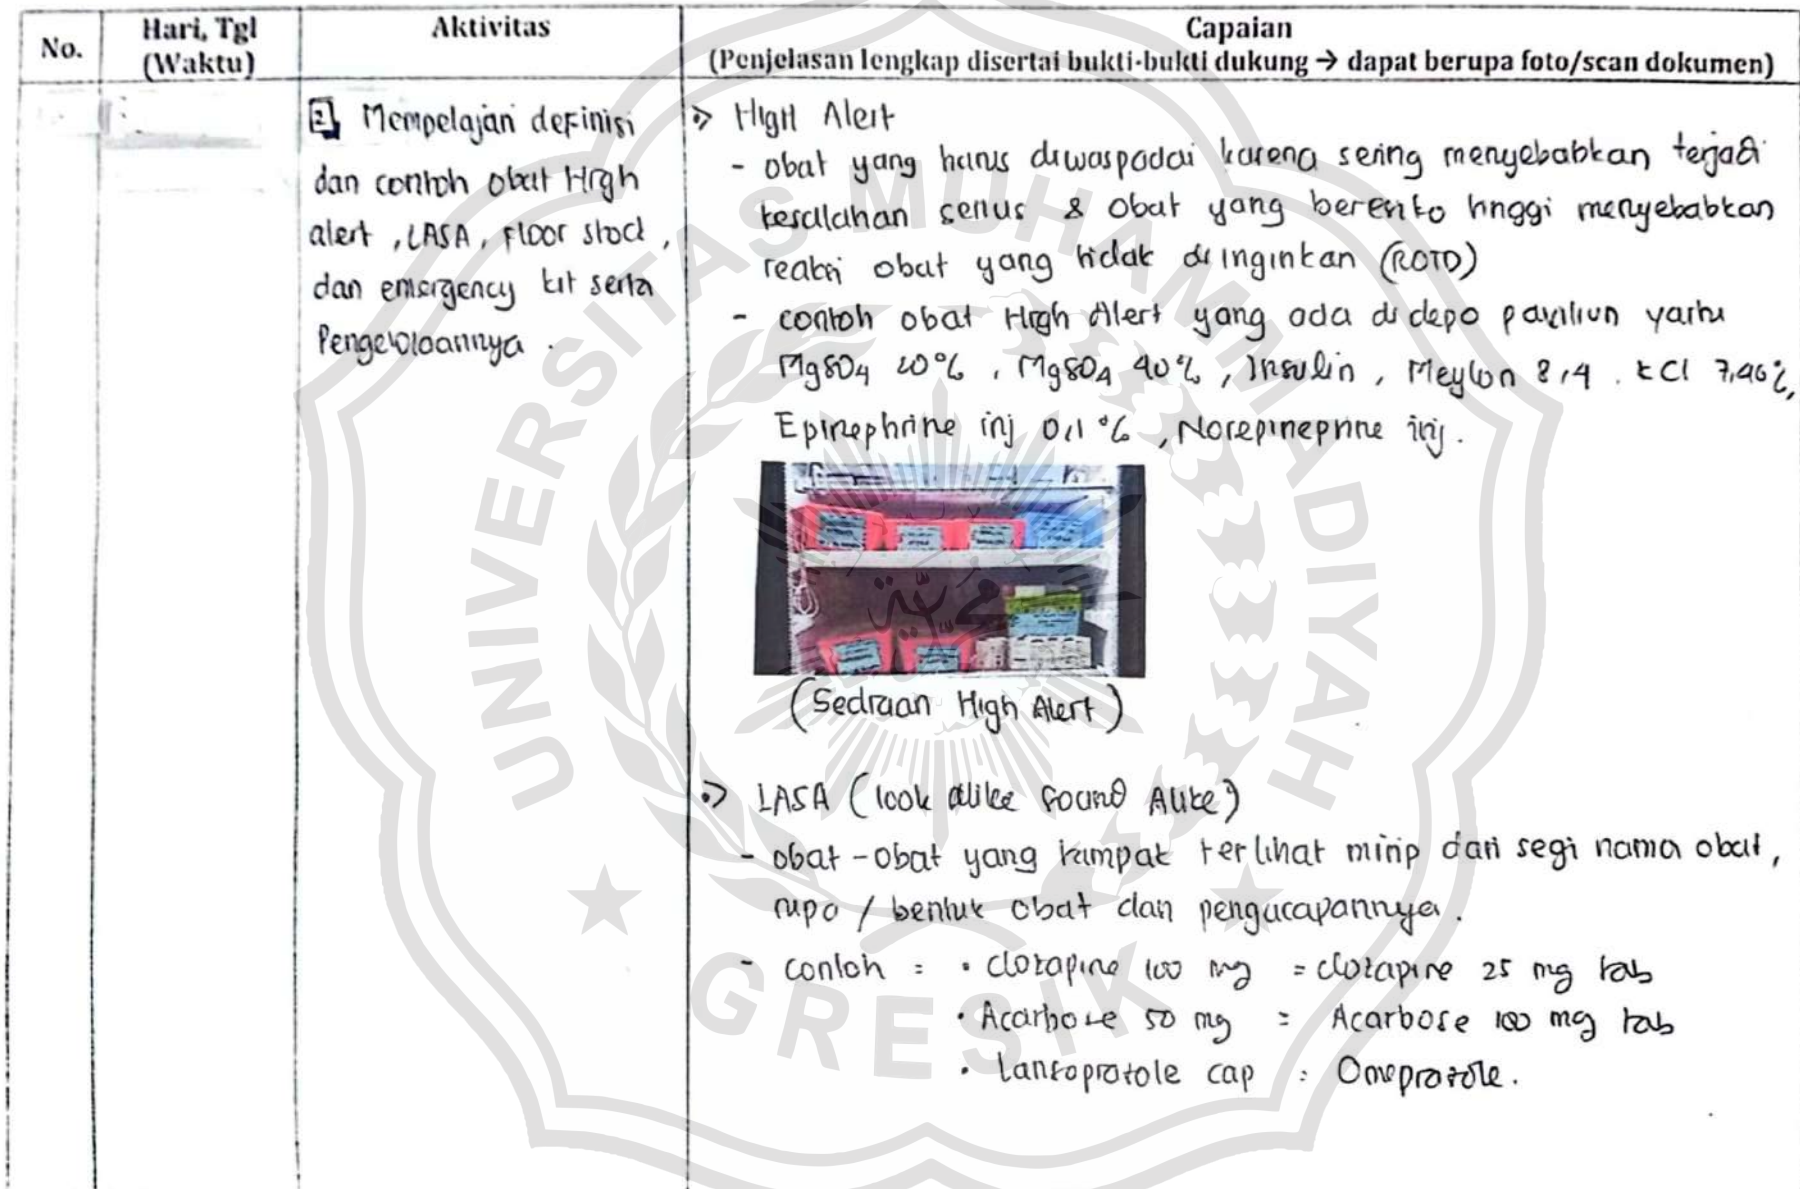 No.
Hari, Tgl
(Waktu)
Aktivitas
Capaian
(Penjelasan lengkap disertai bukti-bukti dukung → dapat berupa foto/scan dokumen)
2 Mempelajari definisi
dan contoh obat High
alert, LASA, floor stock,
dan emergency kit serta
Pengelolaannya.
High Alert
- obat yang harus diwaspadai karena sering menyebabkan terjadi
kesalahan serius & obat yang beresiko tinggi menyebabkan
reaksi obat yang tidak diinginkan (ROTD)
- contoh obat High Alert yang ada di depo paviliun yaitu
MgSO4 20%, MgSO4 40%, Insulin, Meylon 8,4. KCl 7,46%,
Epinephrine inj 0,1 %, Norepinephrine inj.
(Sediaan High Alert)
LASA (look alike sound Alike)
- obat-obat yang tampak terlihat mirip dari segi nama obat,
rupa / bentuk obat dan pengucapannya.
- contoh = • clozapine 100 mg = clozapine 25 mg tab
• Acarbose 50 mg = Acarbose 100 mg tab
• Lansoprazole cap : Omeprazole.
UNIVERSITAS MUHAMMADIYAH
GRESIK